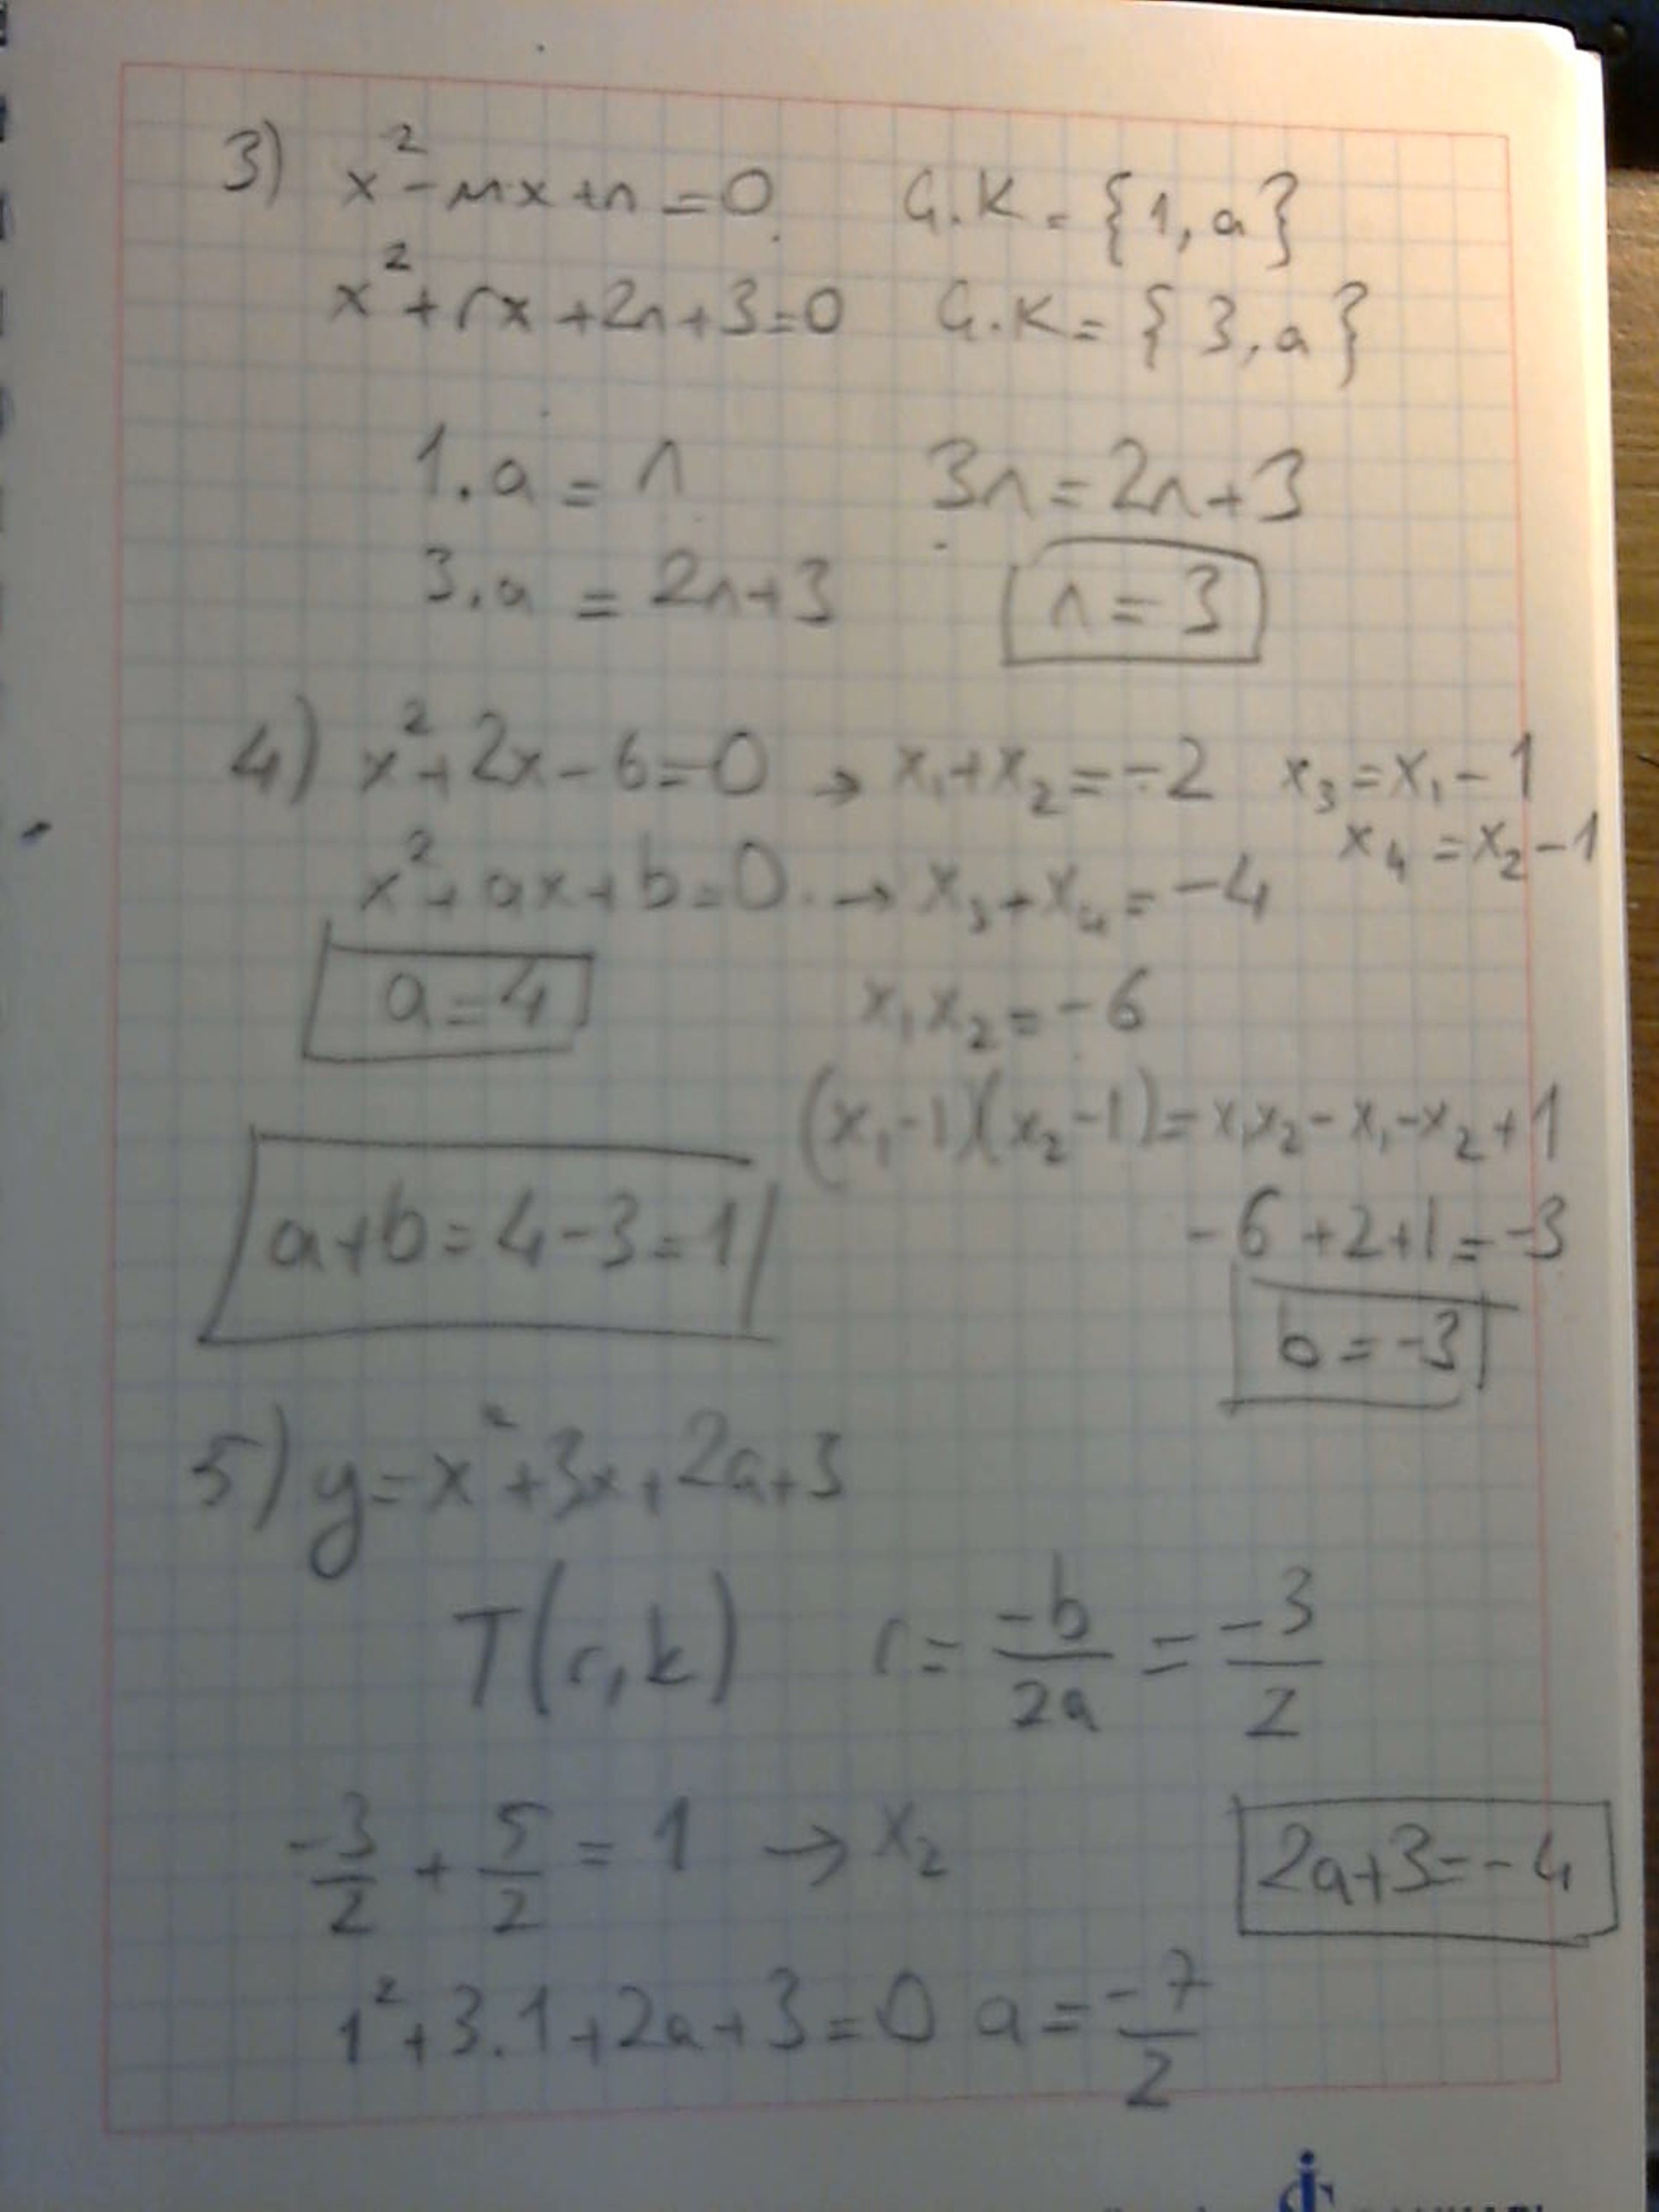 3) x² - mx + n = 0 Ç.K = {1, a}
x² + rx + 2n + 3 = 0 Ç.K = {3, a}
1.a = n 3n = 2n + 3
3.a = 2n + 3 n = 3
4) x² + 2x - 6 = 0 → x₁ + x₂ = -2 x₃ = x₁ - 1
x₄ = x₂ - 1
x² + ax + b = 0 → x₃ + x₄ = -4
a = 4 x₁x₂ = -6
(x₁ - 1)(x₂ - 1) = x₁x₂ - x₁ - x₂ + 1
a + b = 4 - 3 = 1 -6 + 2 + 1 = -3
b = -3
5) y = x² + 3x + 2a + 3
T(r, k) r = -b/2a = -3/2
-3/2 + 5/2 = 1 → x₂ 2a + 3 = -4
1² + 3.1 + 2a + 3 = 0 a = -7/2